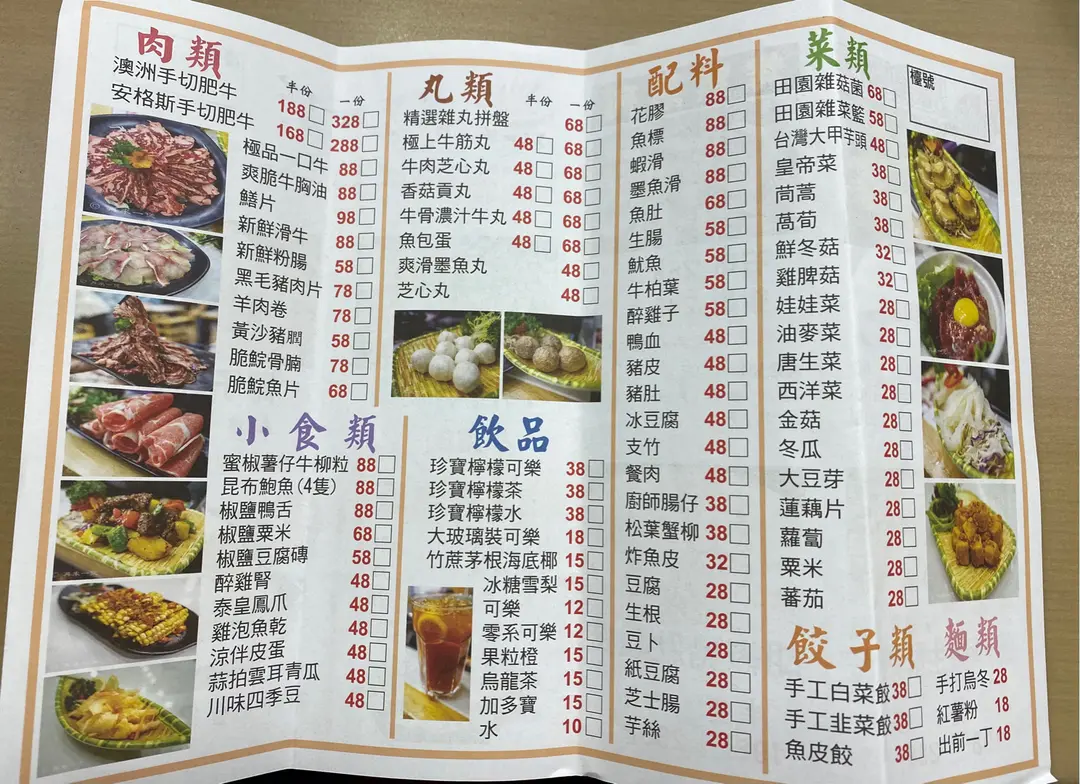 肉類
半份 一份
澳洲手切肥牛 188 328
安格斯手切肥牛 168 288
極品一口牛 88
爽脆牛胸油 88
鱔片 98
新鮮滑牛 88
新鮮粉腸 58
黑毛豬肉片 78
羊肉卷 78
黃沙豬膶 58
脆鯇骨腩 78
脆鯇魚片 68
小食類
蜜椒薯仔牛柳粒 88
昆布鮑魚(4隻) 88
椒鹽鴨舌 88
椒鹽粟米 68
椒鹽豆腐磚 58
醉雞腎 48
泰皇鳳爪 48
雞泡魚乾 48
涼伴皮蛋 48
蒜拍雲耳青瓜 48
川味四季豆 48
丸類
半份 一份
精選雜丸拼盤 68
極上牛筋丸 48 68
牛肉芝心丸 48 68
香菇貢丸 48 68
牛骨濃汁牛丸 48 68
魚包蛋 48 68
爽滑墨魚丸 48
芝心丸 48
飲品
珍寶檸檬可樂 38
珍寶檸檬茶 38
珍寶檸檬水 38
大玻璃裝可樂 18
竹蔗茅根海底椰 15
冰糖雪梨 15
可樂 12
零系可樂 12
果粒橙 15
烏龍茶 15
加多寶 15
水 10
配料
花膠 88
魚標 88
蝦滑 88
墨魚滑 88
魚肚 68
生腸 58
魷魚 58
牛柏葉 58
醉雞子 58
鴨血 48
豬皮 48
豬肚 48
冰豆腐 48
支竹 48
餐肉 48
廚師腸仔 38
松葉蟹柳 38
炸魚皮 32
豆腐 28
生根 28
豆卜 28
紙豆腐 28
芝士腸 28
芋絲 28
菜類
田園雜菇菌 68
田園雜菜籃 58
台灣大甲芋頭 48
皇帝菜 38
茼蒿 38
萵荀 38
鮮冬菇 32
雞脾菇 32
娃娃菜 28
油麥菜 28
唐生菜 28
西洋菜 28
金菇 28
冬瓜 28
大豆芽 28
蓮藕片 28
蘿蔔 28
粟米 28
蕃茄 28
餃子類
手工白菜餃 38
手工韭菜餃 38
魚皮餃 38
麵類
手打烏冬 28
紅薯粉 18
出前一丁 18
檯號